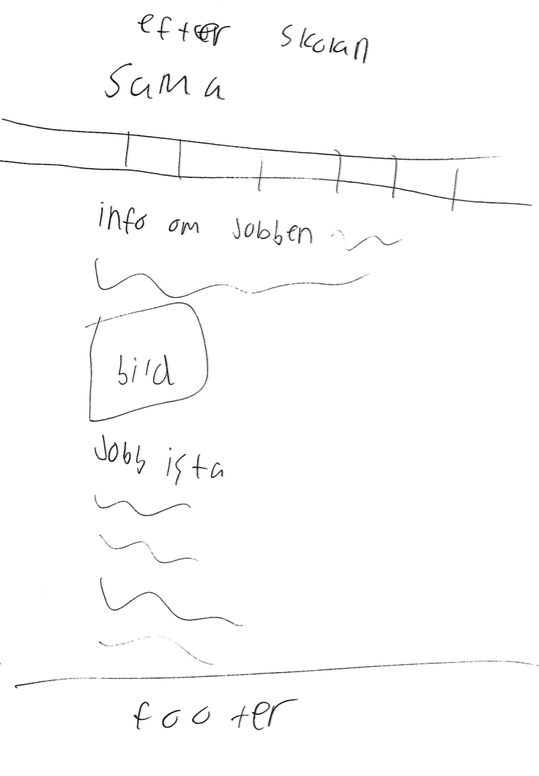 efter skolan
sama
info om Jobben
bild
Jobb ista
footer